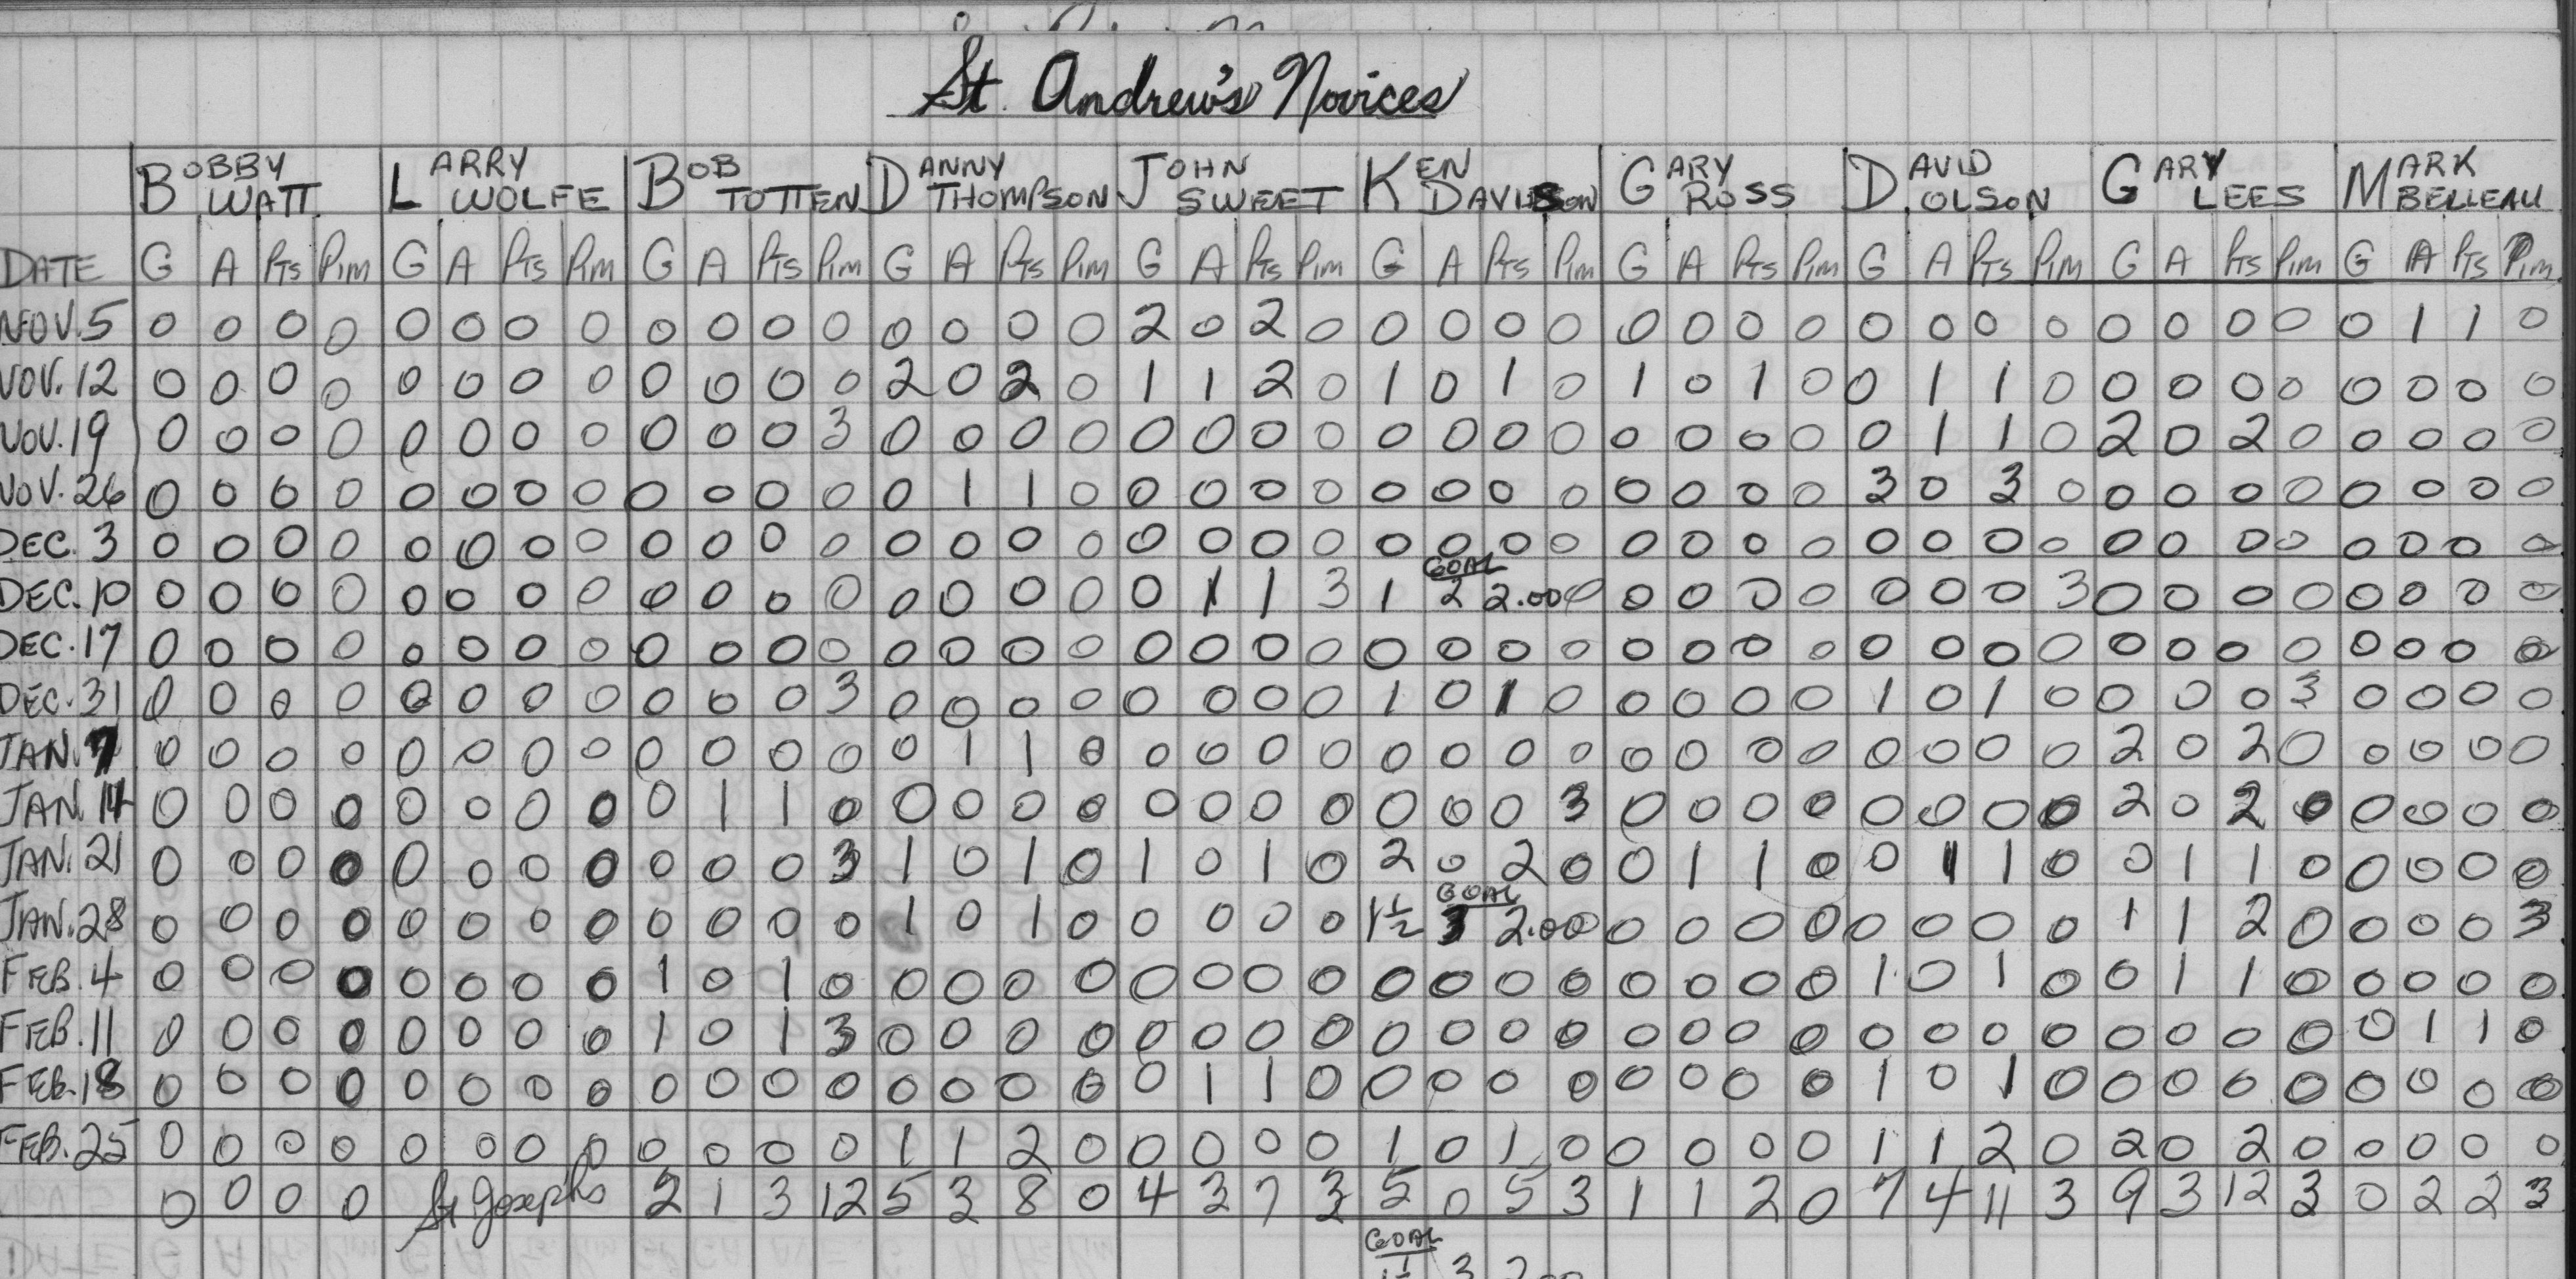 St. Andrew's Novices
BOBBY WATT LARRY WOLFE BOB TOTTEN DANNY THOMPSON JOHN SWEET KEN DAVISON GARY ROSS DAVID OLSON GARY LEES MARK BELLEAU
DATE G A Pts Pim G A Pts Pim G A Pts Pim G A Pts Pim G A Pts Pim G A Pts Pim G A Pts Pim G A Pts Pim G A Pts Pim G A Pts Pim
NOV. 5 0 0 0 0 0 0 0 0 0 0 0 0 0 0 0 0 2 0 2 0 0 0 0 0 0 0 0 0 0 0 0 0 0 0 0 0 0 1 1 0
NOV. 12 0 0 0 0 0 0 0 0 0 0 0 0 2 0 2 0 1 1 2 0 1 0 1 0 1 0 1 0 0 1 1 0 0 0 0 0 0 0 0 0
NOV. 19 0 0 0 0 0 0 0 0 0 0 0 3 0 0 0 0 0 0 0 0 0 0 0 0 0 0 0 0 0 1 1 0 2 0 2 0 0 0 0 0
NOV. 26 0 0 0 0 0 0 0 0 0 0 0 0 0 1 1 0 0 0 0 0 0 0 0 0 0 0 0 0 3 0 3 0 0 0 0 0 0 0 0 0
DEC. 3 0 0 0 0 0 0 0 0 0 0 0 0 0 0 0 0 0 0 0 0 0 0 0 0 0 0 0 0 0 0 0 0 0 0 0 0 0 0 0 0
GOAL
DEC. 10 0 0 0 0 0 0 0 0 0 0 0 0 0 0 0 0 0 1 1 3 1 2 2.00 0 0 0 0 0 0 0 0 3 0 0 0 0 0 0 0 0
DEC. 17 0 0 0 0 0 0 0 0 0 0 0 0 0 0 0 0 0 0 0 0 0 0 0 0 0 0 0 0 0 0 0 0 0 0 0 0 0 0 0 0
DEC. 31 0 0 0 0 0 0 0 0 0 0 0 3 0 0 0 0 0 0 0 0 1 0 1 0 0 0 0 0 1 0 1 0 0 0 0 3 0 0 0 0
JAN. 7 0 0 0 0 0 0 0 0 0 0 0 0 0 1 1 0 0 0 0 0 0 0 0 0 0 0 0 0 0 0 0 0 2 0 2 0 0 0 0 0
JAN. 14 0 0 0 0 0 0 0 0 0 1 1 0 0 0 0 0 0 0 0 0 0 0 0 3 0 0 0 0 0 0 0 0 2 0 2 0 0 0 0 0
JAN. 21 0 0 0 0 0 0 0 0 0 0 0 3 1 0 1 0 1 0 1 0 2 0 2 0 0 1 1 0 0 1 1 0 0 1 1 0 0 0 0 0
GOAL
JAN. 28 0 0 0 0 0 0 0 0 0 0 0 0 1 0 1 0 0 0 0 0 1½ 3 2.00 0 0 0 0 0 0 0 0 1 1 2 0 0 0 0 3
FEB. 4 0 0 0 0 0 0 0 0 1 0 1 0 0 0 0 0 0 0 0 0 0 0 0 0 0 0 0 0 1 0 1 0 0 1 1 0 0 0 0 0
FEB. 11 0 0 0 0 0 0 0 0 1 0 1 3 0 0 0 0 0 0 0 0 0 0 0 0 0 0 0 0 0 0 0 0 0 0 0 0 0 1 1 0
FEB. 18 0 0 0 0 0 0 0 0 0 0 0 0 0 0 0 0 0 1 1 0 0 0 0 0 0 0 0 0 1 0 1 0 0 0 0 0 0 0 0 0
FEB. 25 0 0 0 0 0 0 0 0 0 0 0 0 1 1 2 0 0 0 0 0 1 0 1 0 0 0 0 0 1 1 2 0 2 0 2 0 0 0 0 0
0 0 0 0 St Josephs 2 1 3 12 5 3 8 0 4 3 7 3 5 0 5 3 1 1 2 0 7 4 11 3 9 3 12 3 0 2 2 3
GOAL